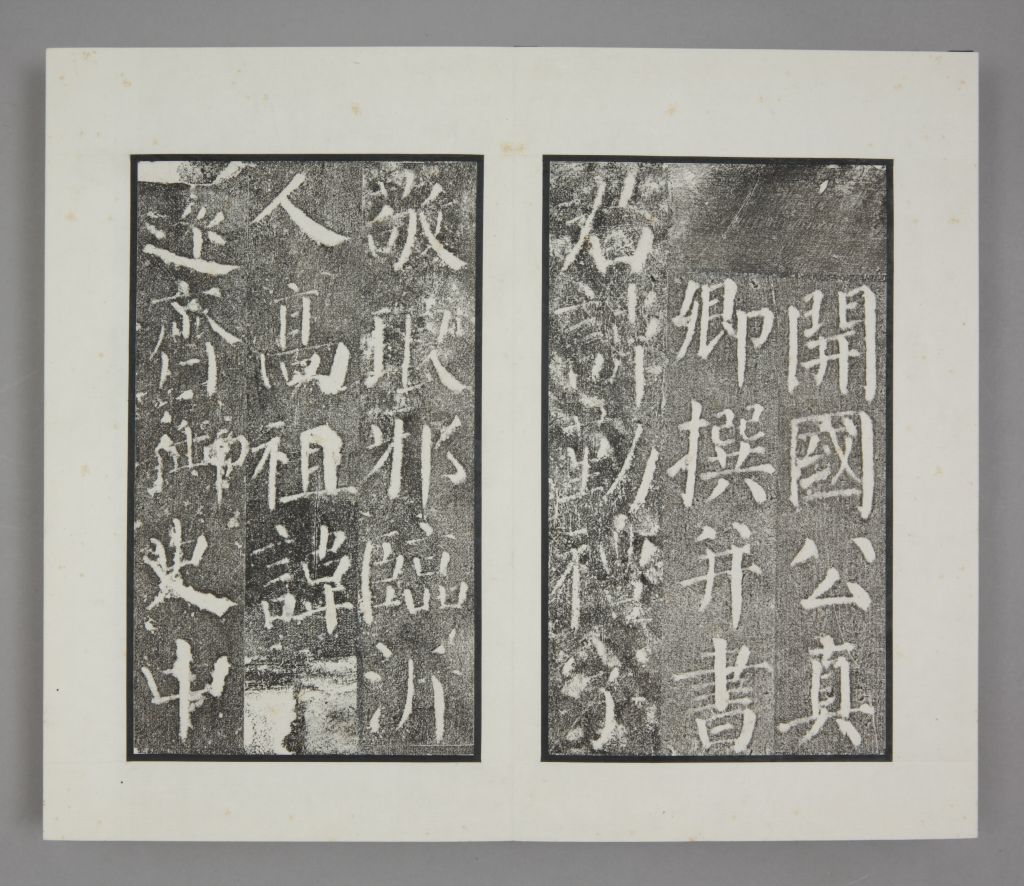 開國公真
卿撰并書
君諱勤禮字
敬琅邪臨沂
人高祖諱
見遠齊御史中